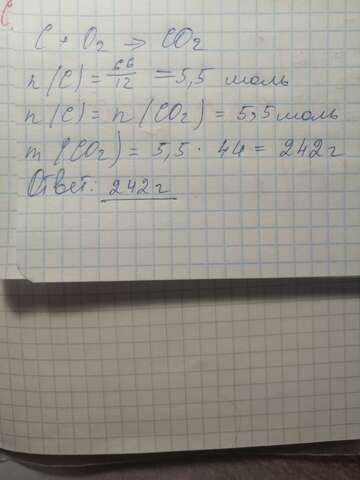 C + O₂ → CO₂
n(C) = 66/12 = 5,5 моль
n(C) = n(CO₂) = 5,5 моль
m(CO₂) = 5,5 · 44 = 242 г
Ответ: 242 г